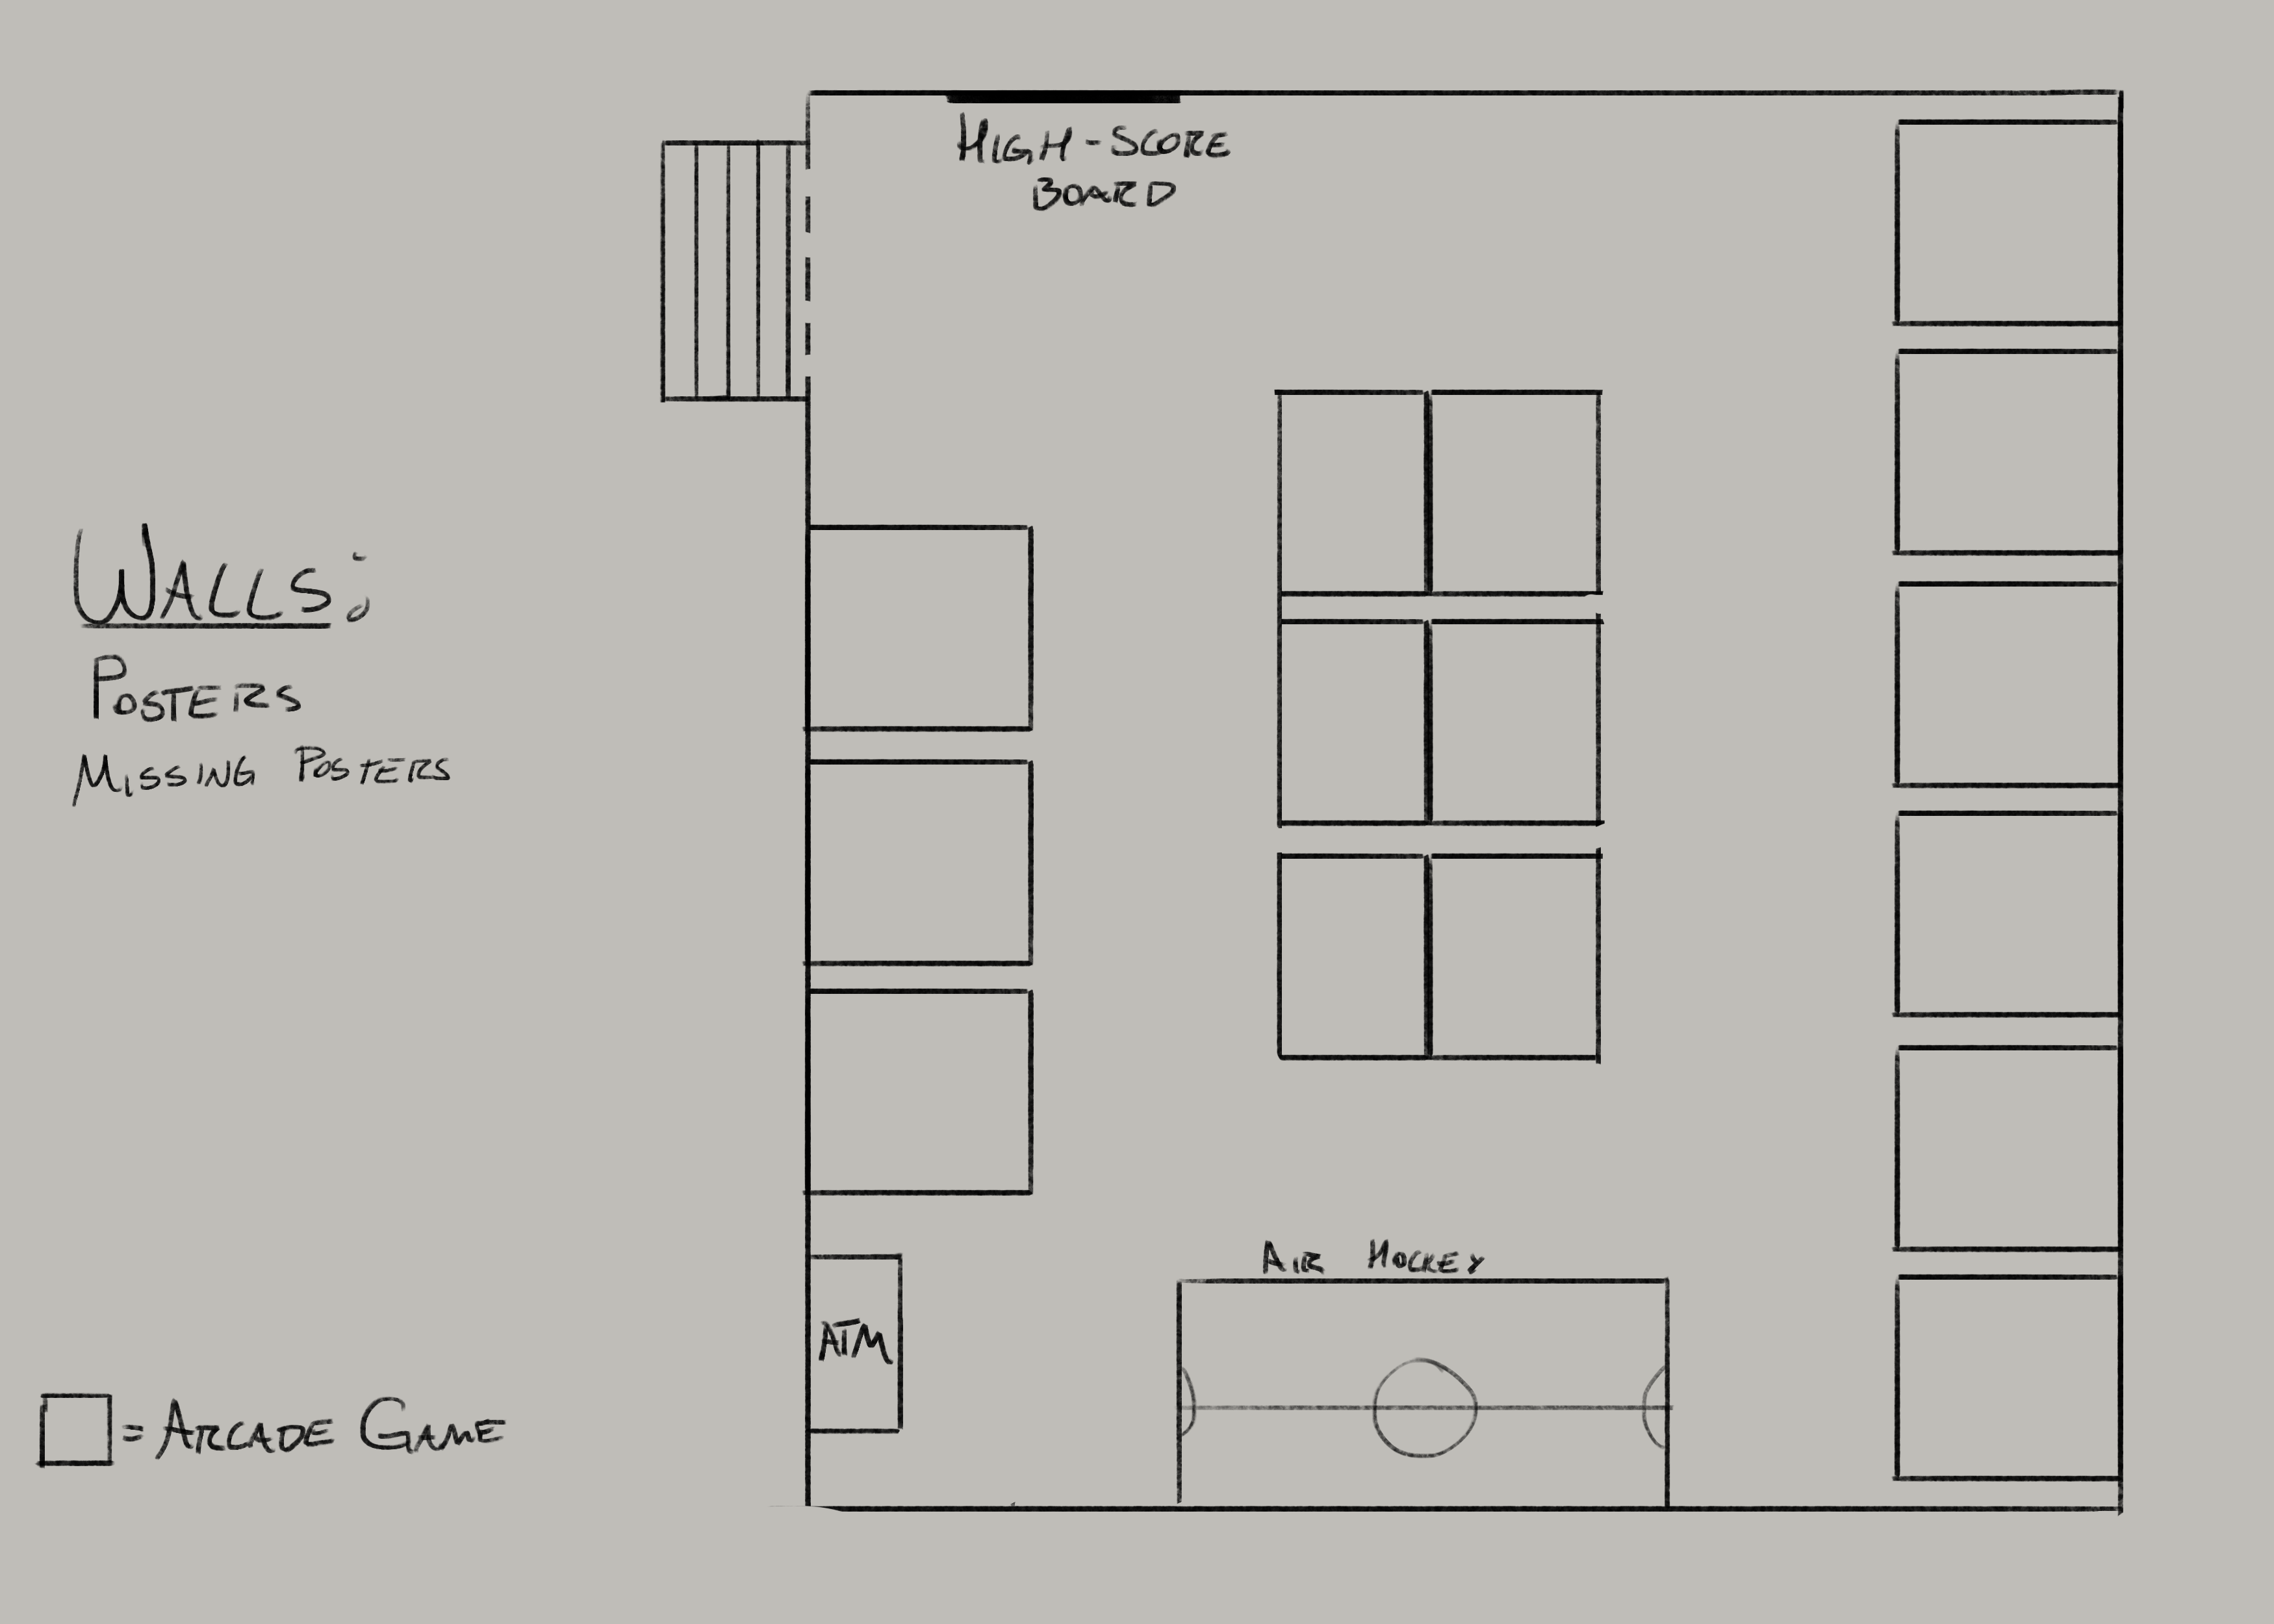 HIGH-SCORE
BOARD
WALLS:
POSTERS
MISSING POSTERS
AIR HOCKEY
ATM
= ARCADE GAME